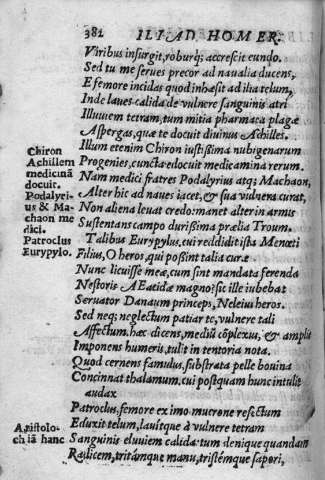 382 ILIAD HOMER.
Viribus insurgit, roburq; accrescit eundo.
Sed tu me serves precor ad navalia ducens,
E femore incidas quod inhæsit ad ilia telum,
Inde laues calida de vulnere sanguinis atri
Illuuiem tetram, tum mitia pharmaca plagæ
Aspergas, quæ te docuit diuinus Achilles.
Chiron
Achillem
medicinā
docuit.
Illum etenim Chiron iustißima nubigenarum
Progenies, cuncta edocuit medicamina rerum.
Nam medici fratres Podalyrius atq; Machaon,
Podalyri-
us & Ma-
chaon me
dici.
Alter hic ad naues iacet, & sua vulnera curat,
Non aliena leuat credo: manet alter in armis
Sustentans campo durißima prælia Troum.
Patroclus
Eurypylo.
Talibus Eurypylus, cui reddidit ista Menœti
Filius, O heros, qui poßint talia curæ
Nunc licuisse meæ, cum sint mandata ferenda
Nestoris AEacidæ magno? sic ille iubebat
Seruator Danaum princeps, Neleius heros.
Sed neq; neglectum patiar te, vulnere tali
Affectum. hæc dicens, mediū cōplexus, & amplis
Imponens humeris, tulit in tentoria nota.
Quod cernens famulus, substrata pelle bouina
Concinnat thalamum. cui postquam hunc intulit
audax
Patroclus, femore ex imo mucrone resectum
Eduxit telum, lauitque à vulnere tetram
Aristolo-
chiā hanc
Sanguinis eluuiem calida: tum denique quandam
Radicem, tritámque manu, tristémque sapori,